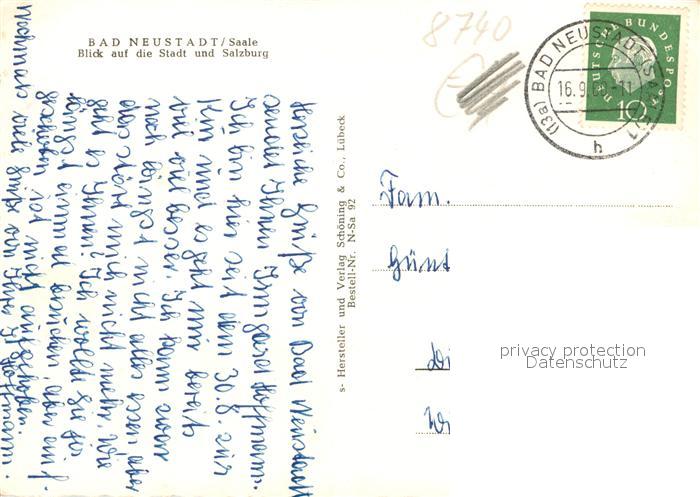 BAD NEUSTADT/Saale
Blick auf die Stadt und Salzburg
8740
DEUTSCHE BUNDESPOST
10
(13a) BAD NEUSTADT (SAALE) 1
16.9.60-11
h
Herzliche Grüße von Bad Neustadt
sendet Ihnen Irmgard Hoffmann.
Ich bin hier seit dem 30.8. zur
Kur und es geht mir bereits
viel besser. Ich kann zwar
noch längst nicht alles essen aber
das stört mich nicht mehr. Wie
geht es Ihnen? Ich wollte Sie ja
längst einmal besuchen, aber auf-
geschoben ist nicht aufgehoben.
Nochmals viele Grüße von Ihrer I. Hoffmann.
s- Hersteller und Verlag Schöning & Co., Lübeck
Bestell-Nr. N-Sa 92
Fam.
Günt
privacy protection
Datenschutz